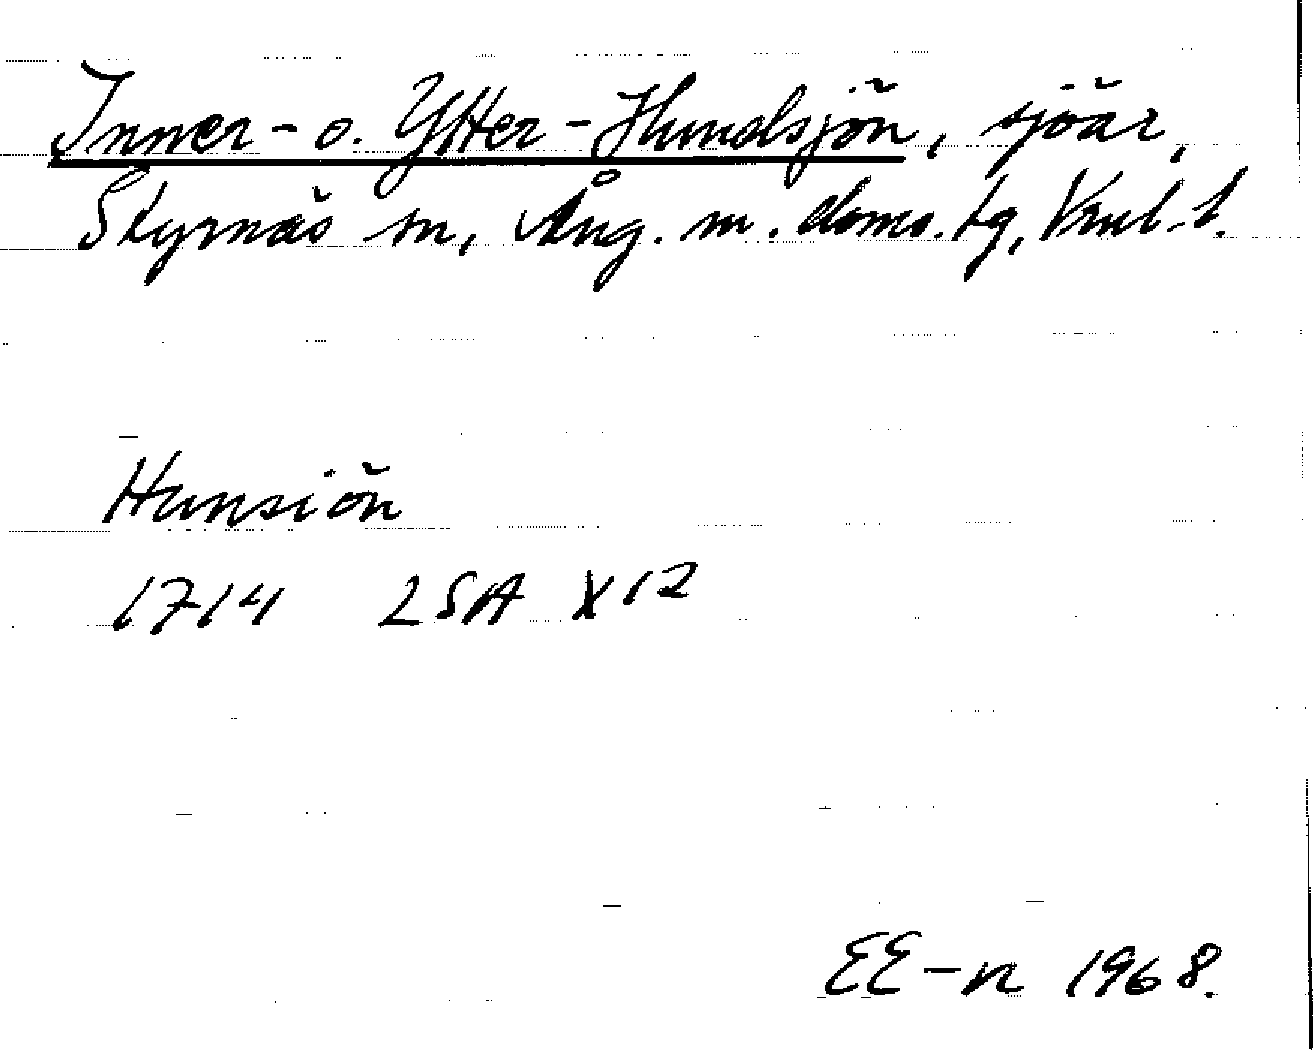 Inner- o. Ytter-Hundsjön, sjöar,
Styrnäs sn, Ång. m. doms. tg, Vnl. l.
Hunsiön
1714 LSA X12
EE-n 1968.